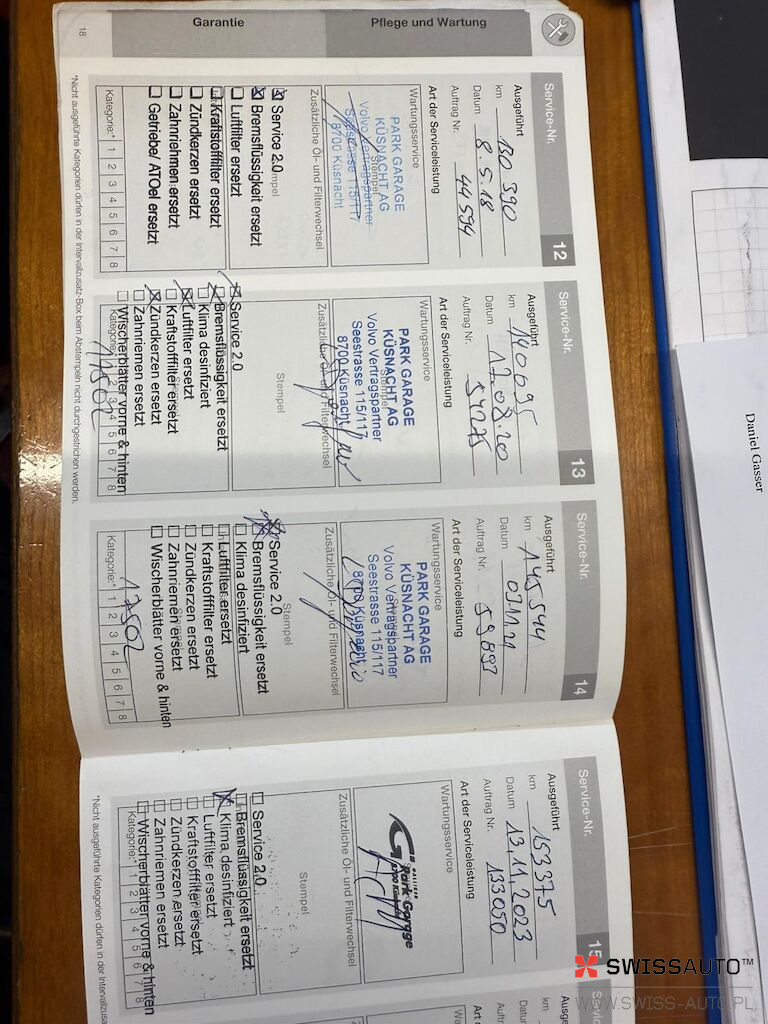 18
Garantie
Pflege und Wartung
Service-Nr.
12
Ausgeführt
km 130 390
Datum 8.5.18
Auftrag Nr. 44594
Art der Serviceleistung
Wartungsservice
PARK GARAGE
KÜSNACHT AG
Stempel
Volvo Vertragspartner
Seestrasse 115/117
8700 Küsnacht
Zusätzliche Öl- und Filterwechsel
Stempel
Service 2.0
Bremsflüssigkeit ersetzt
Luftfilter ersetzt
Kraftstofffilter ersetzt
Zündkerzen ersetzt
Zahnriehmen ersetzt
Getriebe/ ATOel ersetzt
Kategorie:* 1 2 3 4 5 6 7 8
*Nicht ausgeführte Kategorien dürfen in der Intervallzusatz-Box beim Abstempeln nicht durchgestrichen werden.
Service-Nr.
13
Ausgeführt
km 140095
Datum 17.08.20
Auftrag Nr.
Art der Serviceleistung
Wartungsservice
PARK GARAGE
KÜSNACHT AG
Stempel
Volvo Vertragspartner
Seestrasse 115/117
8700 Küsnacht
Zusätzliche Öl- und Filterwechsel
Stempel
Service 2.0
Bremsflüssigkeit ersetzt
Klima desinfiziert
Luftfilter ersetzt
Kraftstofffilter ersetzt
Zündkerzen ersetzt
Zahnriemen ersetzt
Wischerblätter vorne & hinten
Kategorie:* 1 2 3 4 5 6 7 8
Service-Nr.
14
Ausgeführt
km 145544
Datum
Auftrag Nr. 59893
Art der Serviceleistung
Wartungsservice
PARK GARAGE
KÜSNACHT AG
Stempel
Volvo Vertragspartner
Seestrasse 115/117
8700 Küsnacht
Zusätzliche Öl- und Filterwechsel
Stempel
Service 2.0
Bremsflüssigkeit ersetzt
Klima desinfiziert
Luftfilter ersetzt
Kraftstofffilter ersetzt
Zündkerzen ersetzt
Zahnriemen ersetzt
Wischerblätter vorne & hinten
Kategorie:* 1 2 3 4 5 6 7 8
Service-Nr.
15
Ausgeführt
km 153375
Datum 13.11.2023
Auftrag Nr. 133050
Art der Serviceleistung
Wartungsservice
Park Garage
Zusätzliche Öl- und Filterwechsel
Stempel
Service 2.0
Bremsflüssigkeit ersetzt
Klima desinfiziert
Luftfilter ersetzt
Kraftstofffilter ersetzt
Zündkerzen ersetzt
Zahnriemen ersetzt
Wischerblätter vorne & hinten
Kategorie:* 1 2 3 4 5 6 7 8
*Nicht ausgeführte Kategorien dürfen in der Intervallzusa
Servic
Ausge
km
Datum
Auftrag
Art der
Wartun
Zusätz
Daniel Gasser
SWISSAUTO™
WWW.SWISS-AUTO.PL